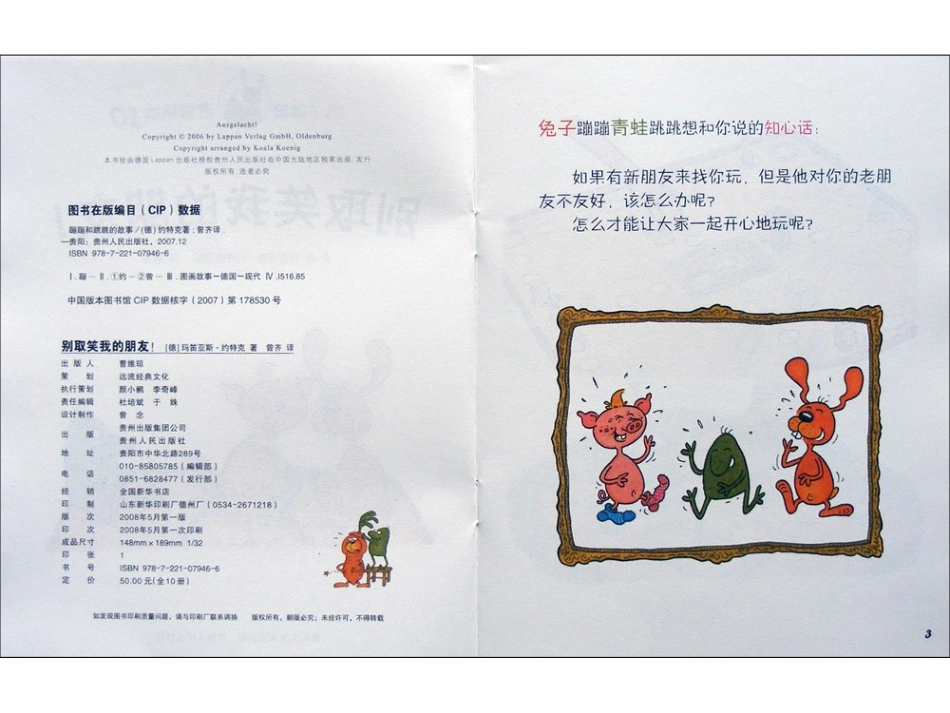 Ausgelacht!
Copyright © 2006 by Lappan Verlag GmbH, Oldenburg
Copyright arranged by Koala Koenig
本书经由德国 Lappan 出版社授权贵州人民出版社在中国大陆地区独家出版、发行
版权所有 违者必究
图书在版编目(CIP)数据
蹦蹦和跳跳的故事/(德)约特克著;曾齐译.
—贵阳:贵州人民出版社,2007.12
ISBN 978-7-221-07946-6
Ⅰ.蹦… Ⅱ.①约…②曾… Ⅲ.图画故事—德国—现代 Ⅳ.I516.85
中国版本图书馆 CIP 数据核字(2007)第 178530 号
别取笑我的朋友! [德]玛笛亚斯·约特克 著 曾齐 译
出版人 曹维琼
策划 远流经典文化
执行策划 颜小鹂 李奇峰
责任编辑 杜培斌 于姝
设计制作 曾念
出版 贵州出版集团公司
贵州人民出版社
地址 贵阳市中华北路289号
电话 010-85805785(编辑部)
0851-6828477(发行部)
经销 全国新华书店
印制 山东新华印刷厂德州厂(0534-2671218)
版次 2008年5月第一版
印次 2008年5月第一次印刷
成品尺寸 148mm×189mm 1/32
印张 1
书号 ISBN 978-7-221-07946-6
定价 50.00元(全10册)
如发现图书印刷质量问题,请与印刷厂联系调换 版权所有,翻版必究;未经许可,不得转载
兔子蹦蹦青蛙跳跳想和你说的知心话:
如果有新朋友来找你玩,但是他对你的老朋
友不友好,该怎么办呢?
怎么才能让大家一起开心地玩呢?
3